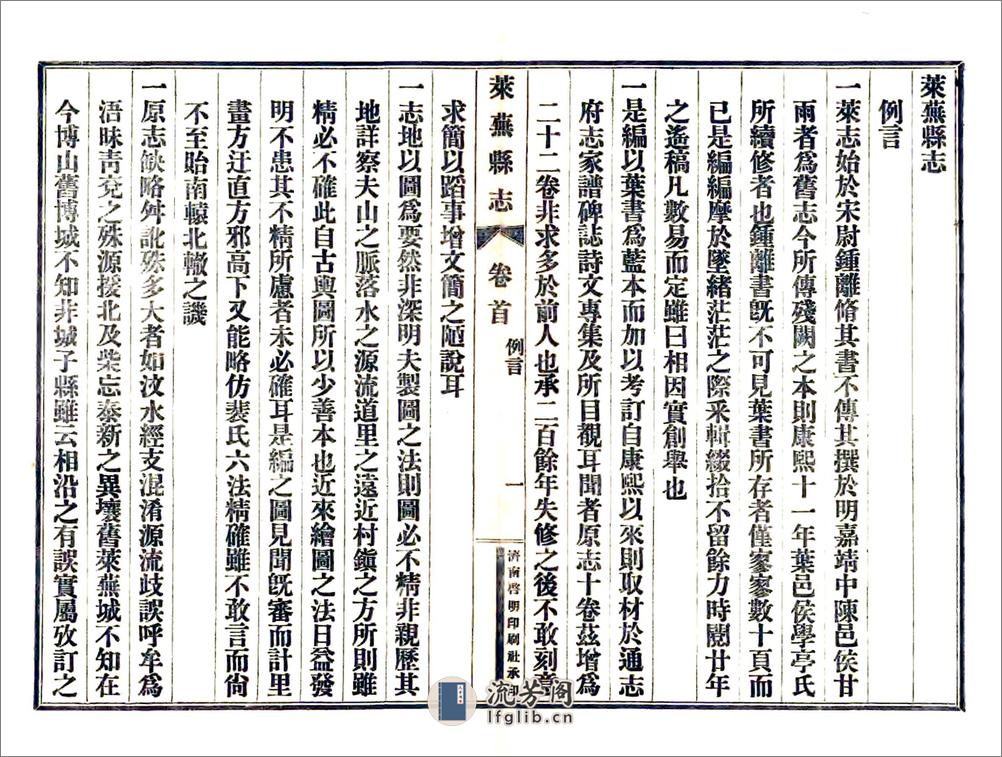 萊蕪縣志
例言
一萊志始於宋尉鍾離脩其書不傳其撰於明嘉靖中陳邑侯甘
雨者爲舊志今所傳殘闕之本則康熙十一年葉邑侯學亭氏
所續修者也鍾離書旣不可見葉書所存者僅寥寥數十頁而
已是編編摩於墜緒茫茫之際釆輯綴拾不留餘力時閱廿年
之遙稿凡數易而定雖曰相因實創舉也
一是編以葉書爲藍本而加以考訂自康熙以來則取材於通志
府志家譜碑誌詩文專集及所目覩耳聞者原志十卷茲增爲
二十二卷非求多於前人也承二百餘年失修之後不敢刻意
萊蕪縣志
卷首
例言
一
濟南啓明印刷社承印
求簡以蹈事增文簡之陋說耳
一志地以圖爲要然非深明夫製圖之法則圖必不精非親歷其
地詳察夫山之脈落水之源流道里之遠近村鎭之方所則雖
精必不確此自古輿圖所以少善本也近來繪圖之法日益發
明不患其不精所慮者未必確耳是編之圖見聞旣審而計里
畫方迂直方邪高下又能略仿裴氏六法精確雖不敢言而尙
不至貽南轅北轍之譏
一原志缺略舛訛殊多大者如汶水經支混淆源流歧誤呼牟爲
浯昧靑兗之殊源援北及柴忘泰新之異壤舊萊蕪城不知在
今博山舊博城不知非城子縣雖云相沿之有誤實屬攷訂之
流芳阁
lfglib.cn